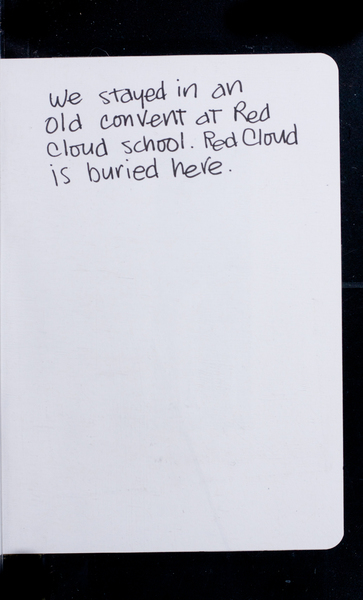 We stayed in an
old convent at Red
Cloud school. Red Cloud
is buried here.